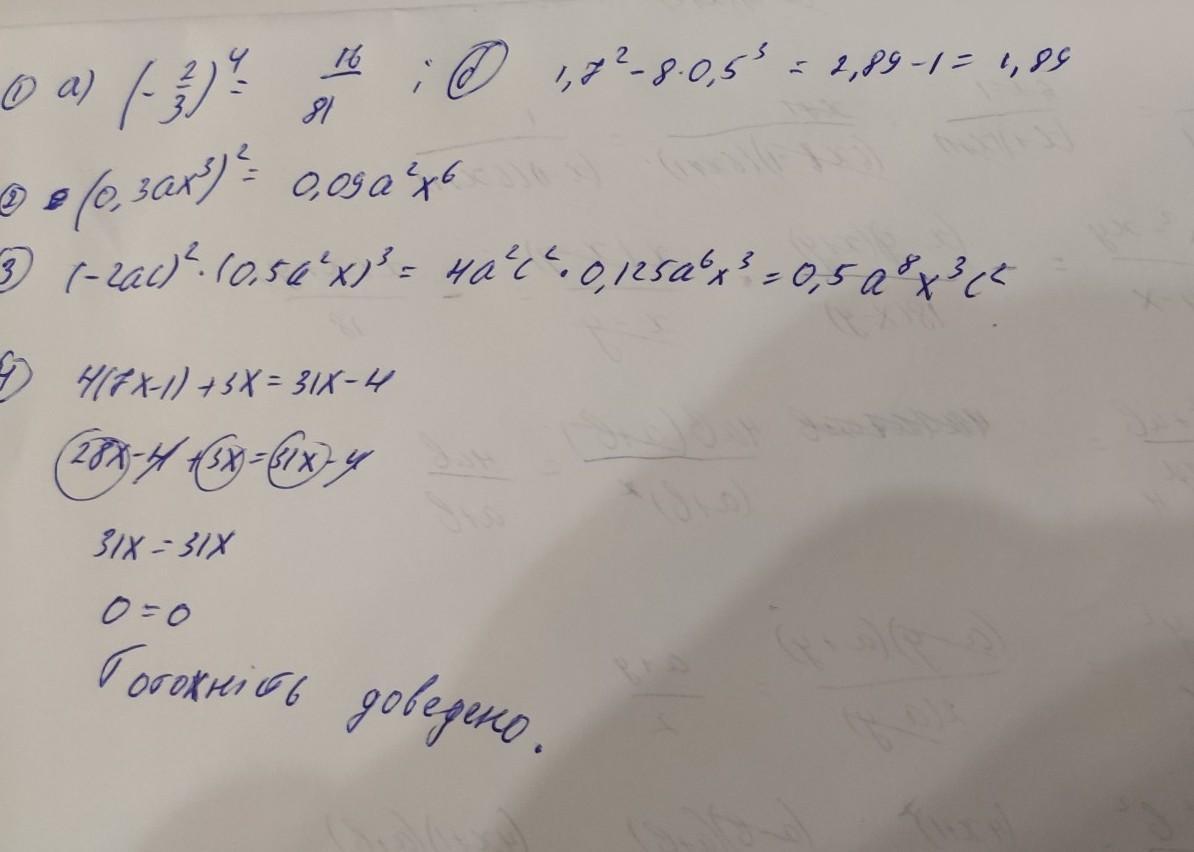 ① а) (-2/3)⁴ = 16/81 ; б) 1,7² - 8·0,5³ = 2,89 - 1 = 1,89
② (0,3ax³)² = 0,09a²x⁶
③ (-2ac)²·(0,5a²x)³ = 4a²c²·0,125a⁶x³ = 0,5a⁸x³c²
④ 4(7x-1)+3x = 31x-4
28x-4+3x=31x-4
31x = 31x
0=0
Тотожність доведено.